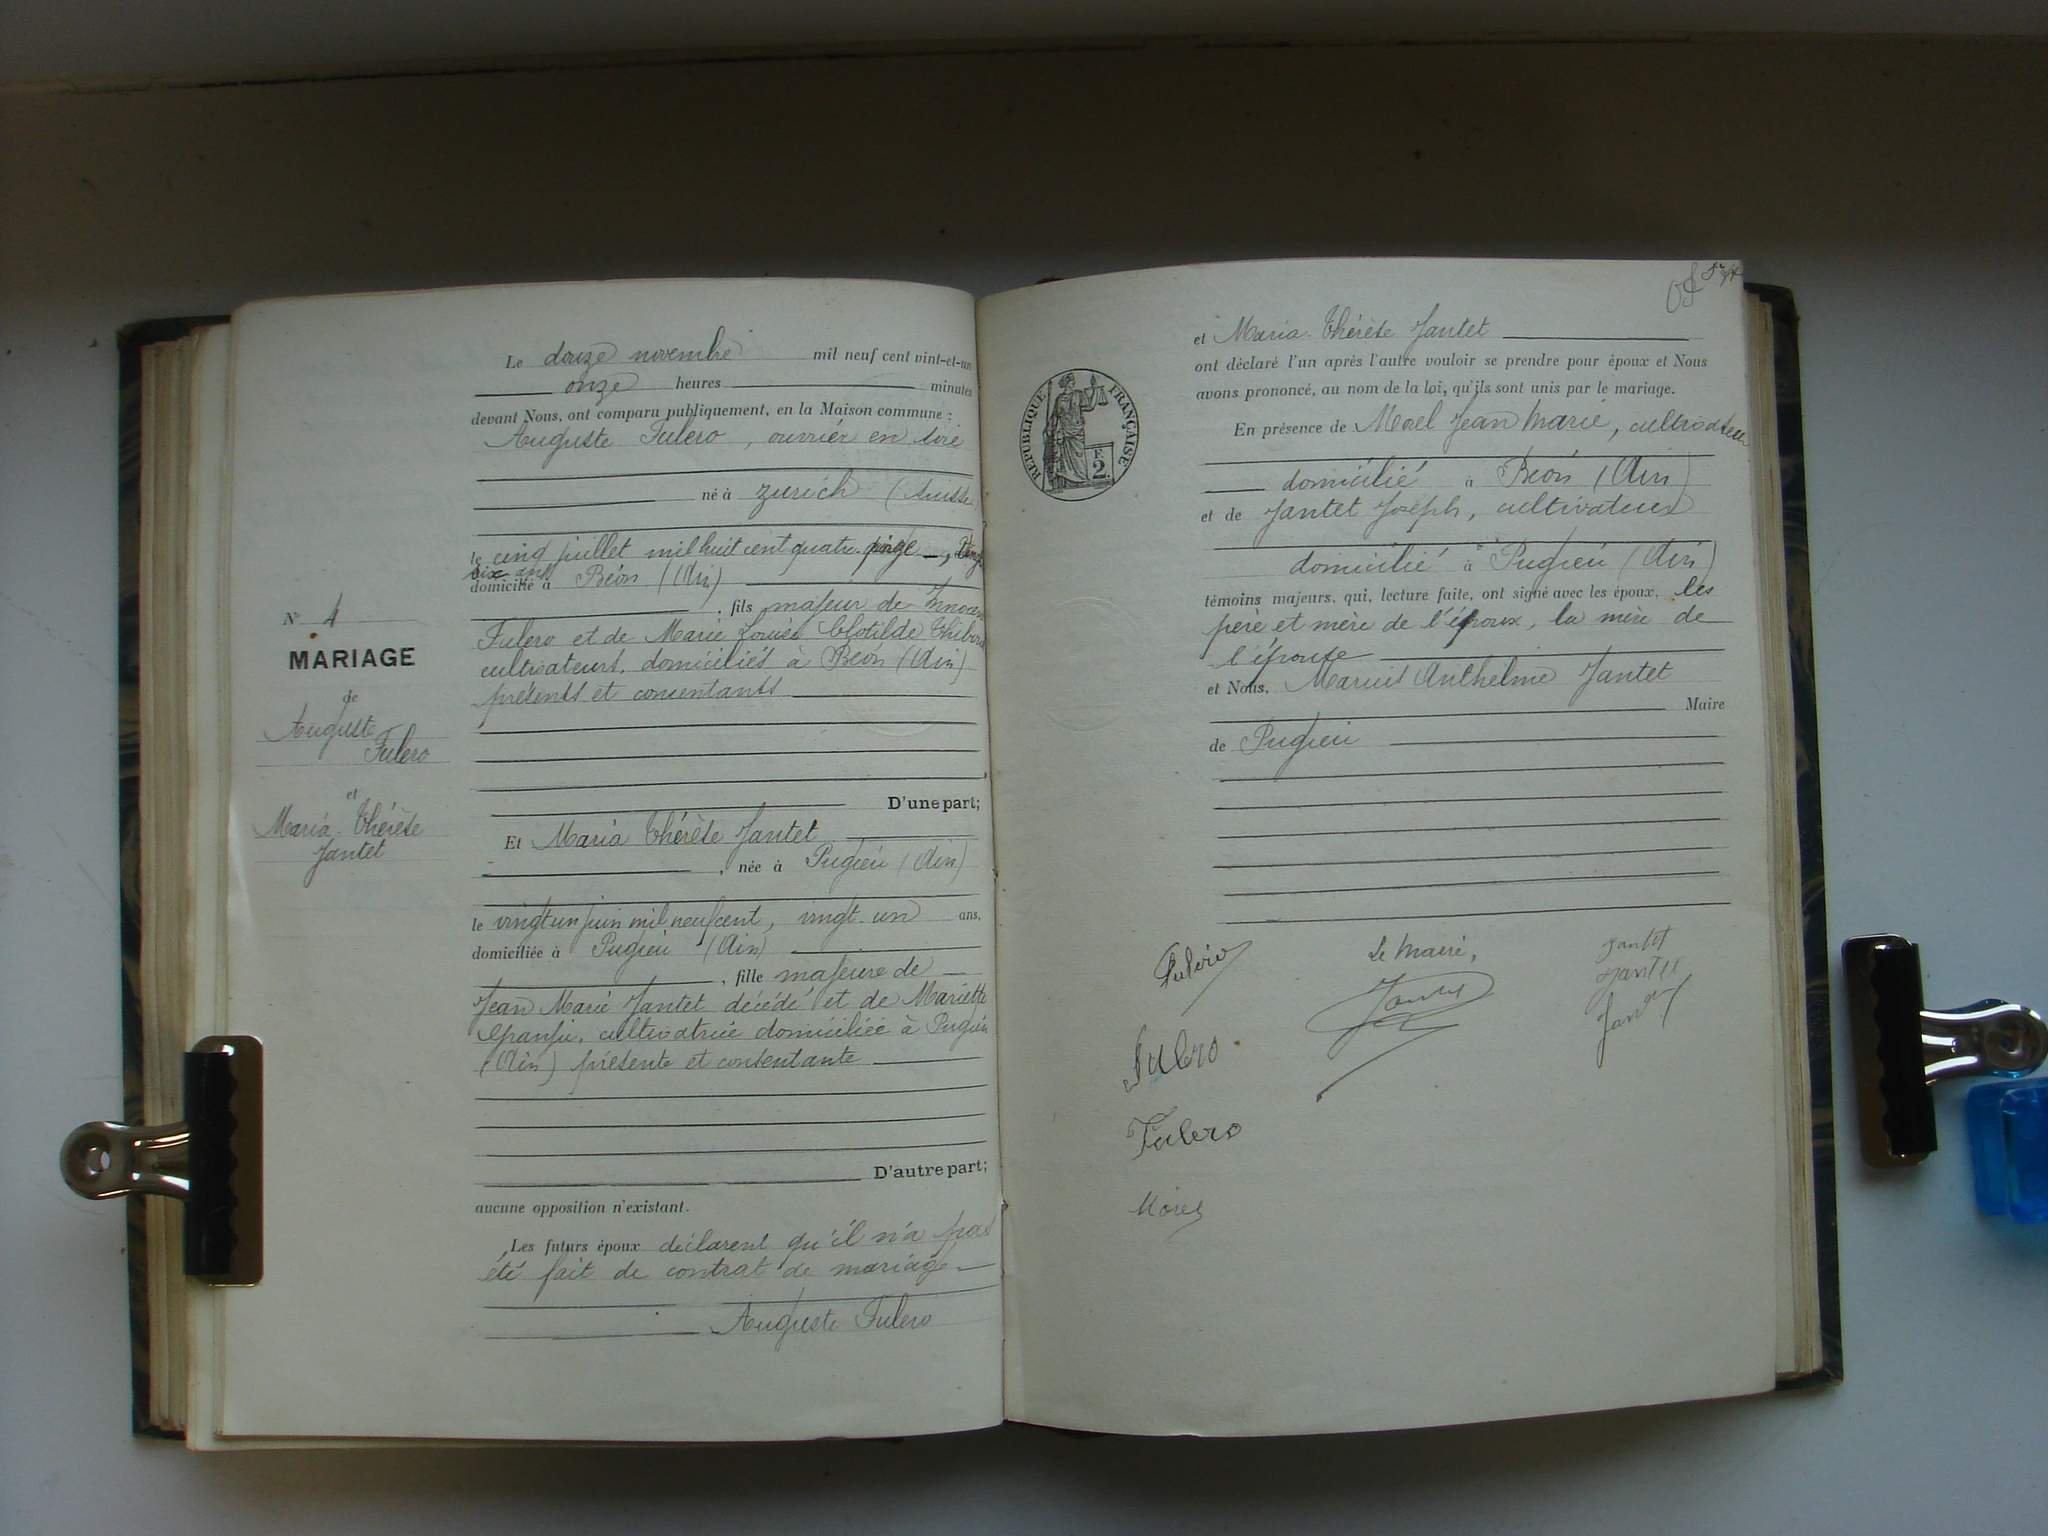 Le douze novembre mil neuf cent vint-et-un
onze heures minutes
devant Nous, ont comparu publiquement, en la Maison commune :
Auguste Fulero, ouvrier en soie
né à Zurich (Suisse
le cinq juillet mil huit cent quatre quinze, vingt
six ans
domicilié à Béon (Ain)
, fils majeur de
Fulero et de Marie Louise Clotilde
cultivateurs, domiciliés à Béon (Ain)
présents et consentants
N° 4
MARIAGE
de
Auguste
Fulero
et
Maria Thérèse
Jantet
D'une part;
Et Maria Thérèse Jantet
, née à Pugieu (Ain)
le vingt un juin mil neuf cent, vingt-un ans,
domiciliée à Pugieu (Ain)
, fille majeure de
Jean Marie Jantet décédé et de Mariette
cultivatrice domiciliée à Pugieu
(Ain) présente et consentante
D'autre part;
aucune opposition n'existant.
Les futurs époux déclarent qu'il n'a pas
été fait de contrat de mariage
Auguste Fulero
et Maria Thérèse Jantet
ont déclaré l'un après l'autre vouloir se prendre pour époux et Nous
avons prononcé, au nom de la loi, qu'ils sont unis par le mariage.
RÉPUBLIQUE FRANÇAISE
F.
2.
En présence de Morel Jean Marie, cultivateur
domicilié à Béon (Ain)
et de Jantet Joseph, cultivateur
domicilié à Pugieu (Ain)
témoins majeurs, qui, lecture faite, ont signé avec les époux, les
père et mère de l'époux, la mère de
l'épouse
et Nous, Marius Anthelme Jantet
Maire
de Pugieu
Fulero
Le Maire,
Jantet
Jantet
Jantet
Jantet
Fulero
Fulero
Morel